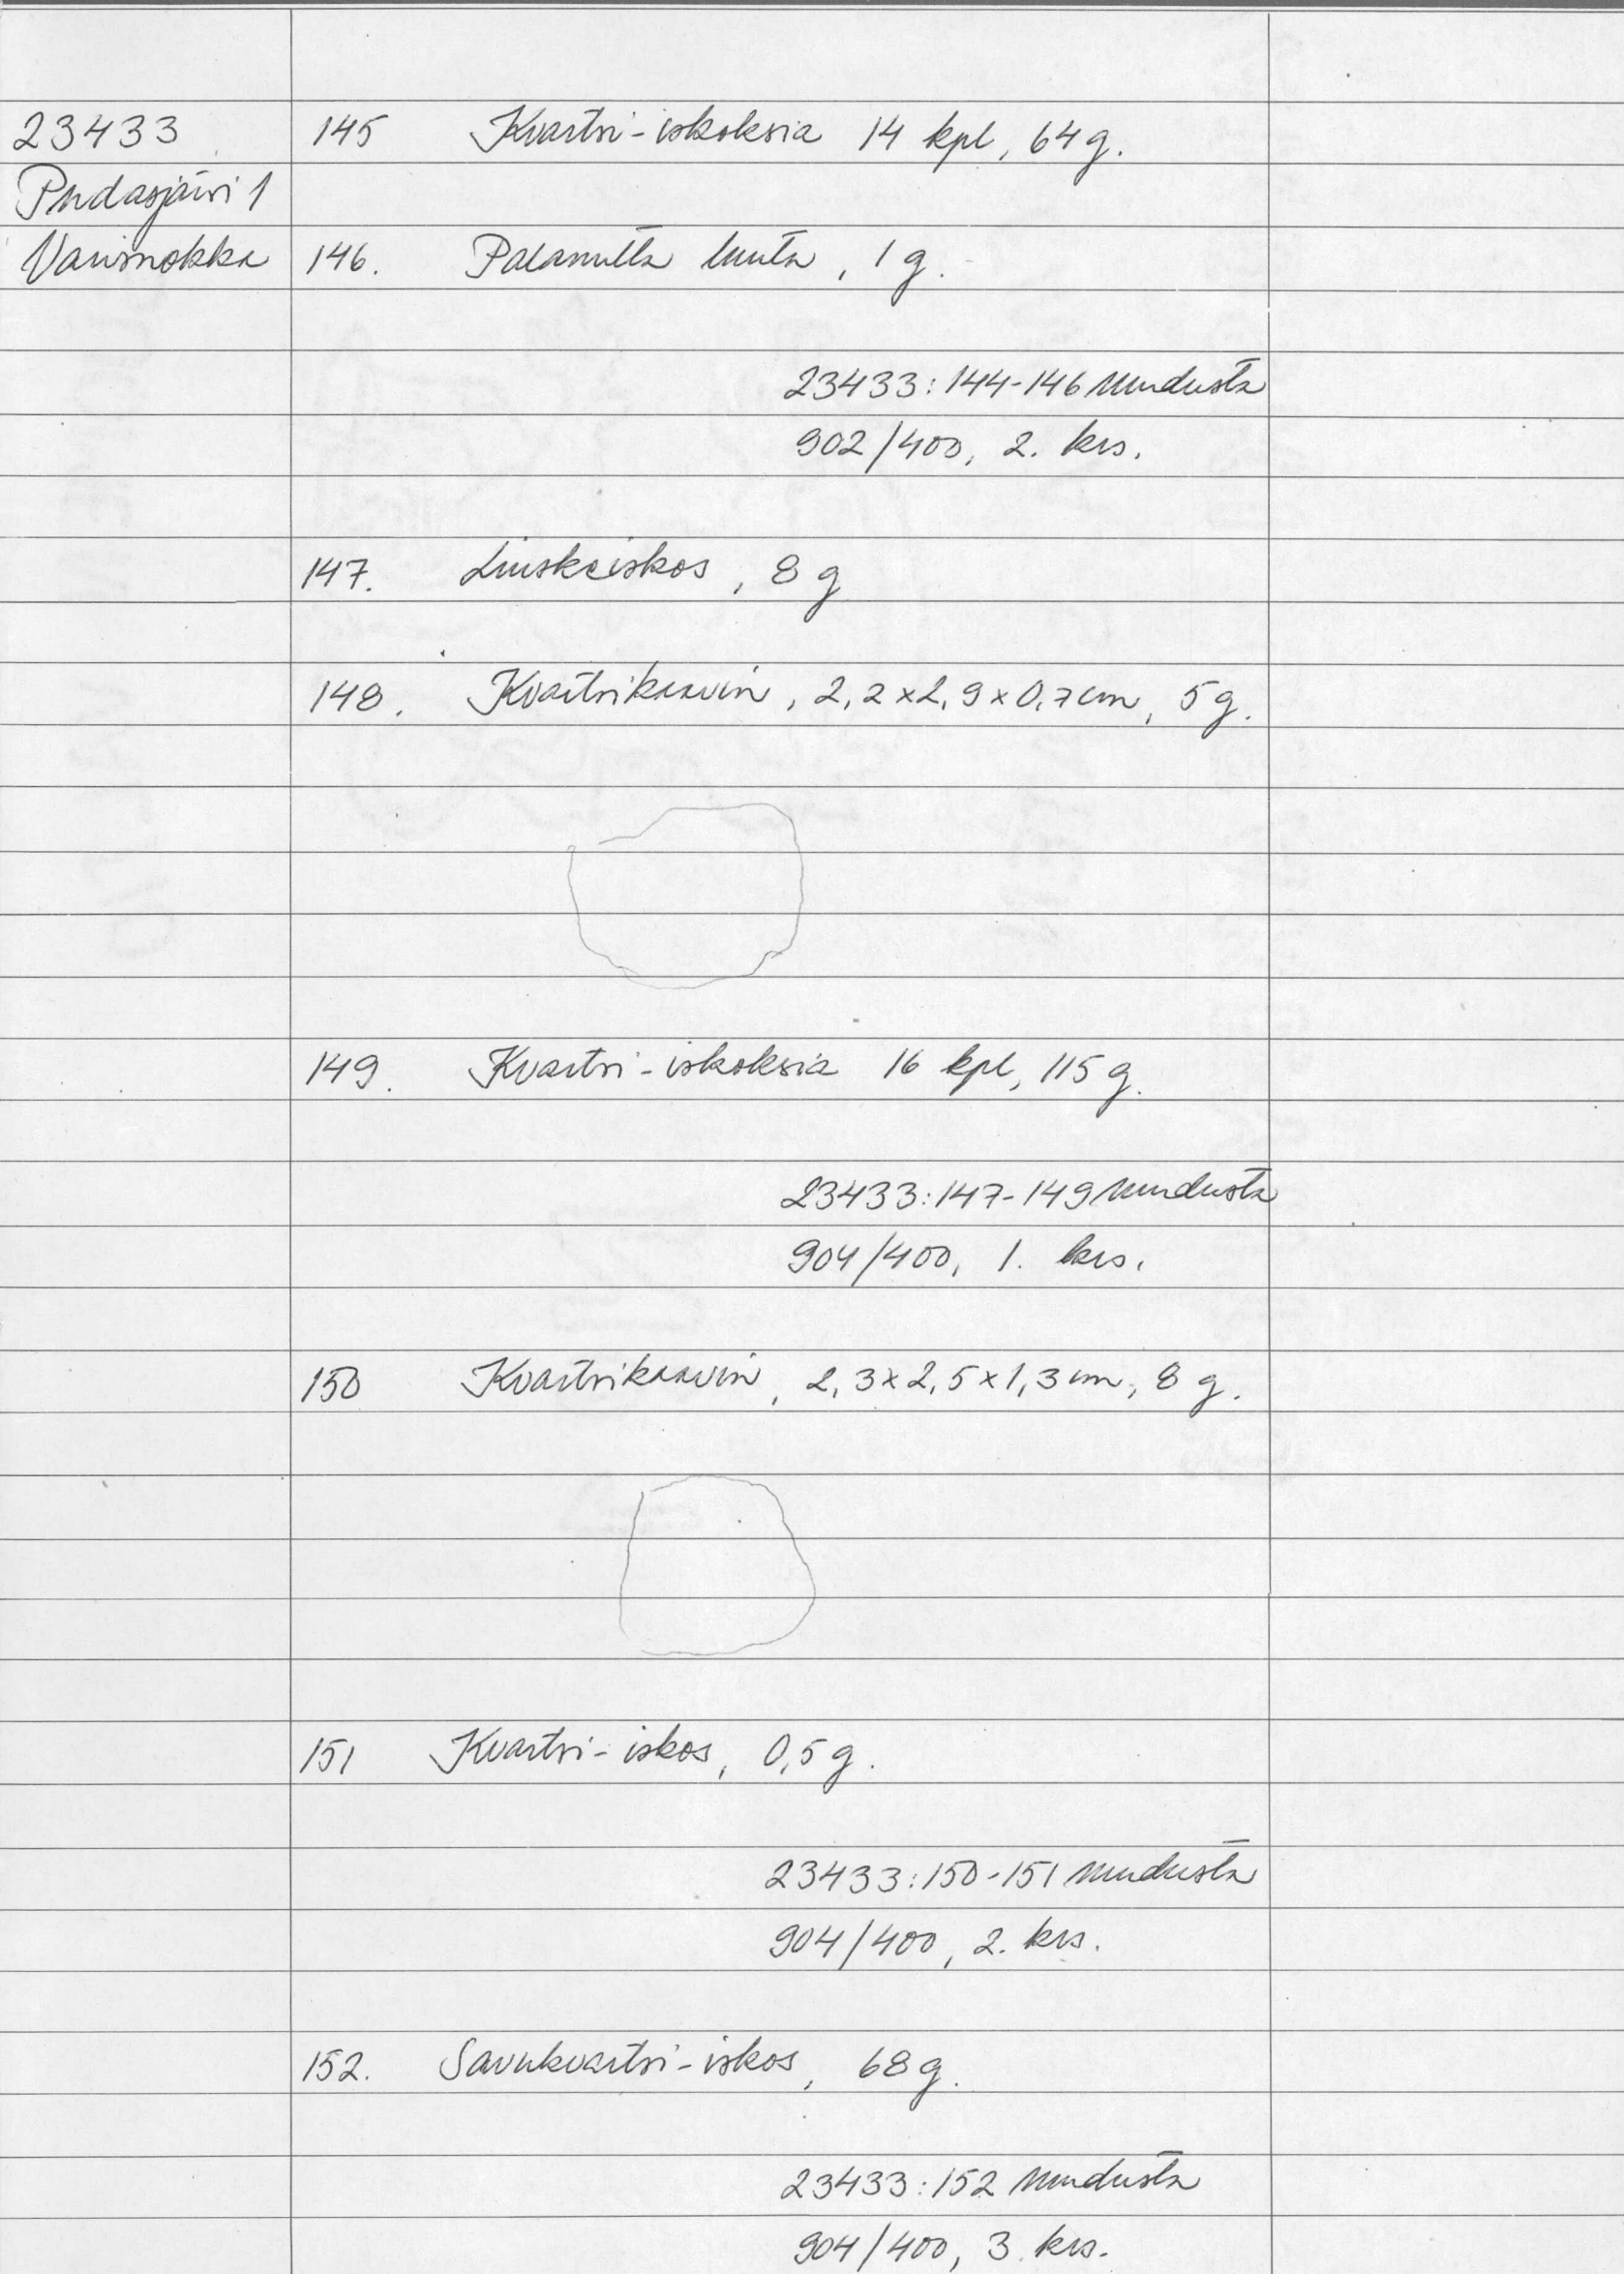 23433 145 Kvartsi-iskoksia 14 kpl, 64 g.
Pudasjärvi 1
Varisnokka 146. Palanutta luuta, 1 g.
23433:144-146 ruudusta
902/400, 2. krs.
147. Liuskeiskos, 8 g
148. Kvartsikaavin, 2,2x2,9x0,7 cm, 5 g.
149. Kvartsi-iskoksia 16 kpl, 115 g.
23433:147-149 ruudusta
904/400, 1. krs.
150 Kvartsikaavin, 2,3x2,5x1,3 cm, 8 g.
151 Kvartsi-iskos, 0,5 g.
23433:150-151 ruudusta
904/400, 2. krs.
152. Savukvartsi-iskos, 68 g.
23433:152 ruudusta
904/400, 3. krs.